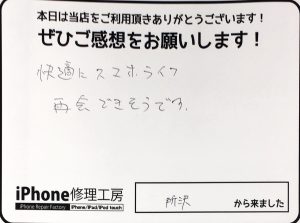 本日は当店をご利用頂きありがとうございます!
ぜひご感想をお願いします!
快適にスマホライフ
再会できそうです。
iPhone修理工房
iPhone Repair Factory
iPhone/iPad/iPod touch
所沢
から来ました